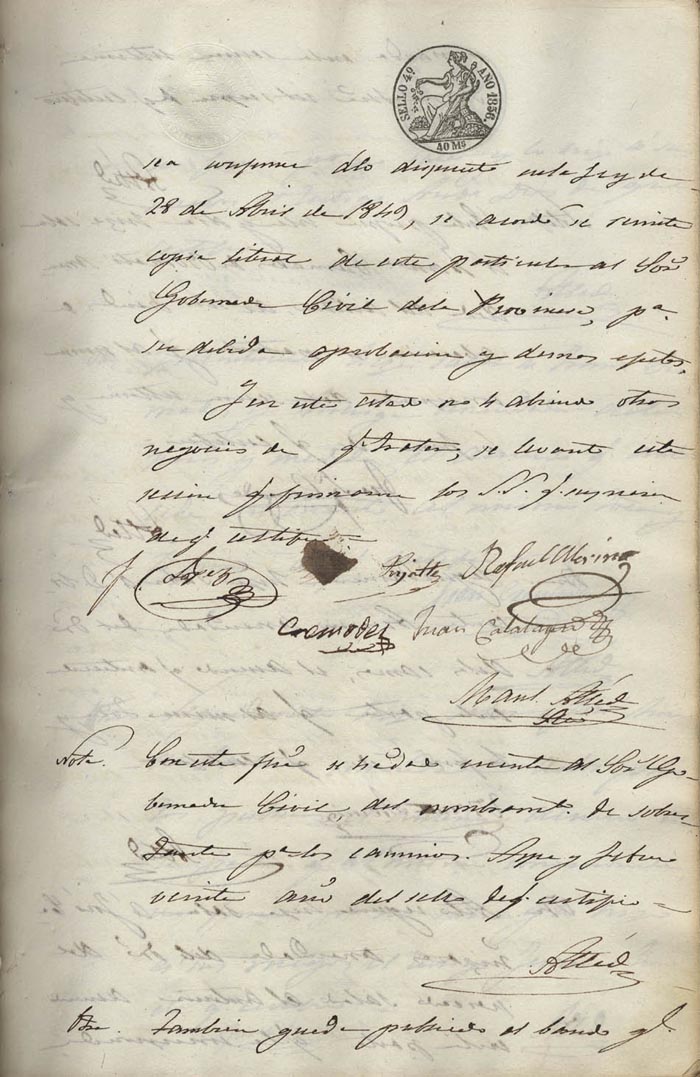 SELLO 4º AÑO 1856.
40 Ms
sea conforme álo dispuesto enla Ley de
28 de Abril de 1849, se acordó se remita
copia literal de este particular al Sor
Gobernador Civil dela Provincia, pa
su debida aprobacion y demas efectos.
Y en este estado no habiendo otros
negocios de q. tratar, se levantó esta
sesion q. firmaron los S.S. q. supieron
de q. certifico
Lopez Rafael Merino
Juan Calatayud
Manl
Srio
Nota. Con esta fha. se ha dado cuenta al Sor Go-
bernador Civil, del nombramto. de sobres-
tante pa. los caminos. Aspe y Febro
veinte año del sello deq. certifico
Otra. Tambien queda publicado el bando q.